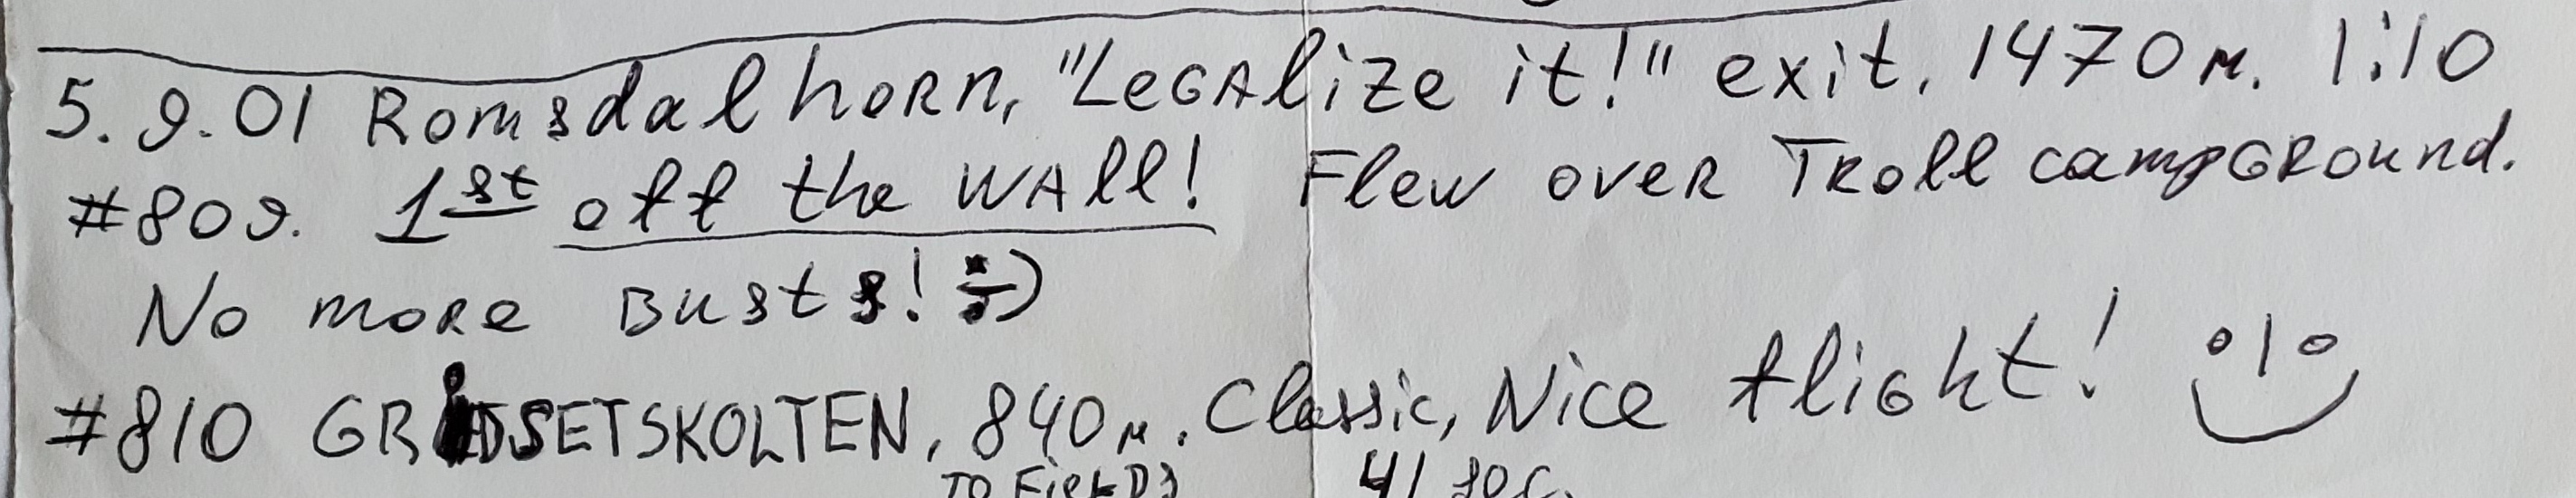 5.9.01 Romsdalhorn, "Legalize it!" exit. 1470 м. 1:10
#809. 1st off the WAll! Flew over Troll campground.
No more Busts! :-)
#810 GRØDSETSKOLTEN, 840 м. Classic, Nice flight!
TO FIELDS 41 sec.